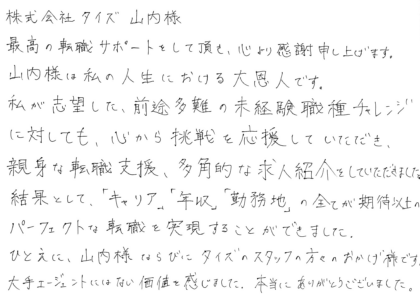 株式会社タイズ 山内様
最高の転職サポートをして頂き、心より感謝申し上げます。
山内様は私の人生における大恩人です。
私が志望した、前途多難の未経験職種チャレンジ
に対しても、心から挑戦を応援していただき、
親身な転職支援、多角的な求人紹介をしていただきました。
結果として、「キャリア」、「年収」、「勤務地」の全てが期待以上の
パーフェクトな転職を実現することができました。
ひとえに、山内様ならびにタイズのスタッフの方々のおかげ様です。
大手エージェントにはない価値を感じました。本当にありがとうございました。